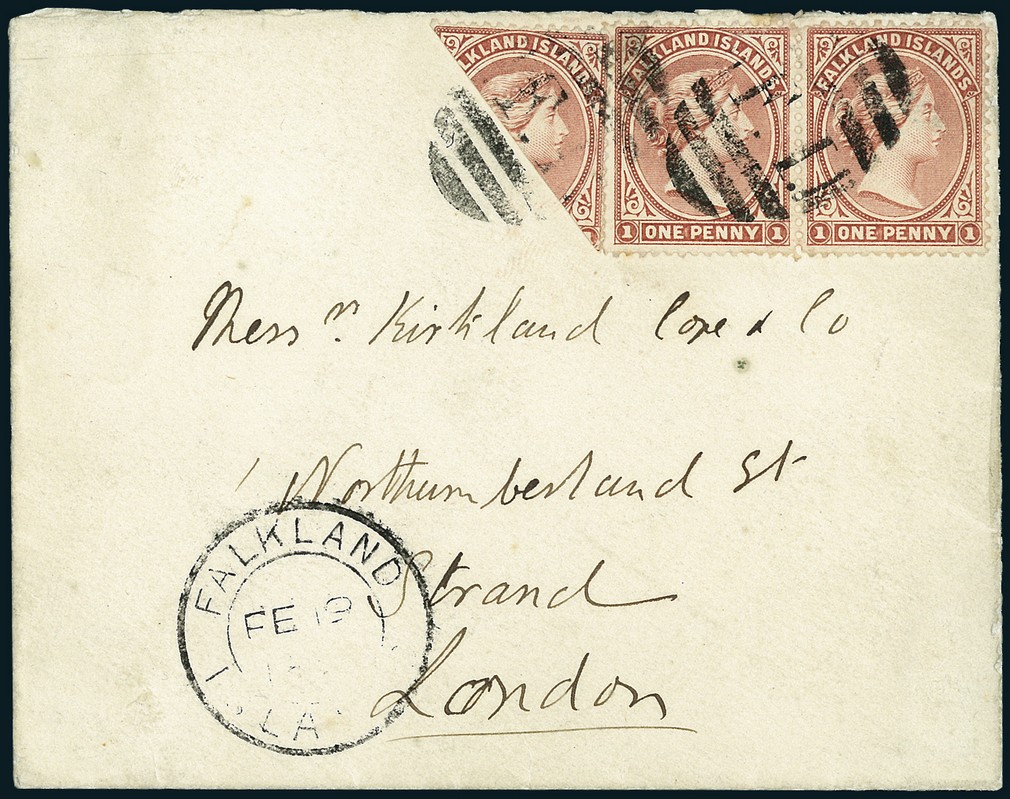 FALKLAND ISLANDS FALKLAND ISLANDS FALKLAND ISLANDS
F.I.
1 ONE PENNY 1 1 ONE PENNY 1
Messrs. Kirkland Cope & Co
1 Northumberland St
Strand
London
FALKLAND
FE 19
ISLA